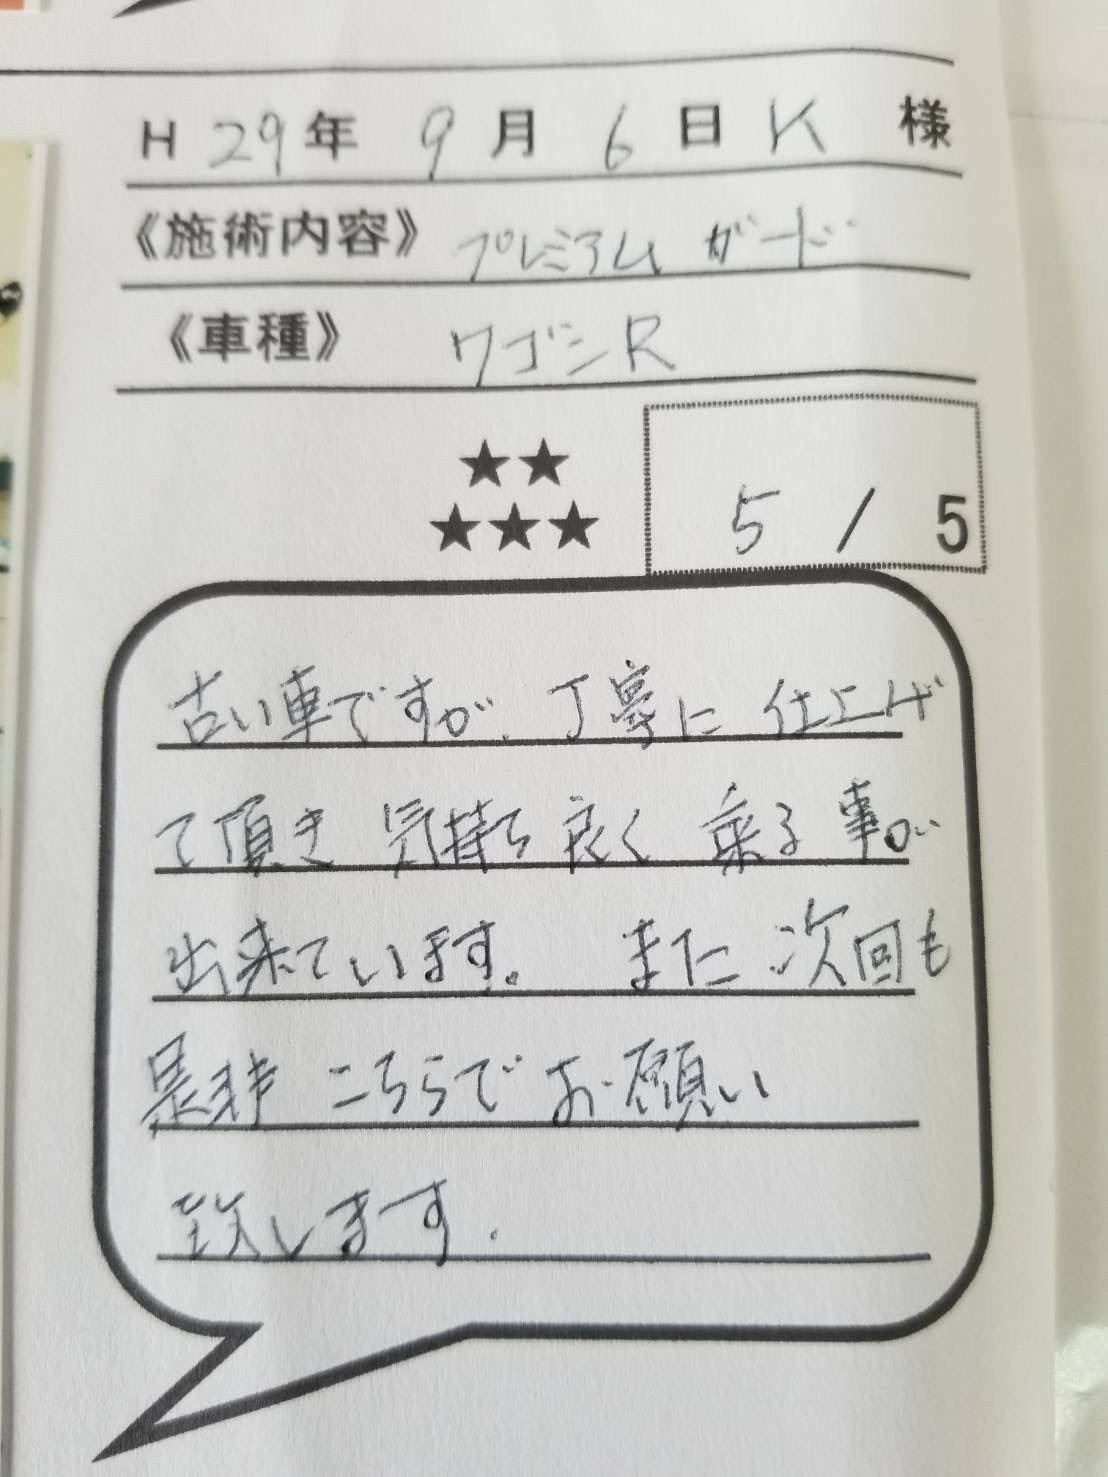 H 29年 9月 6日 K 様
《施術内容》 プレミアム ガード
《車種》 ワゴンR
★★
★★★ 5 / 5
古い車ですが、丁寧に 仕上げ
て頂き 気持ち良く 乗る事が
出来ています。 また 次回も
是非 こちらで お願い
致します.